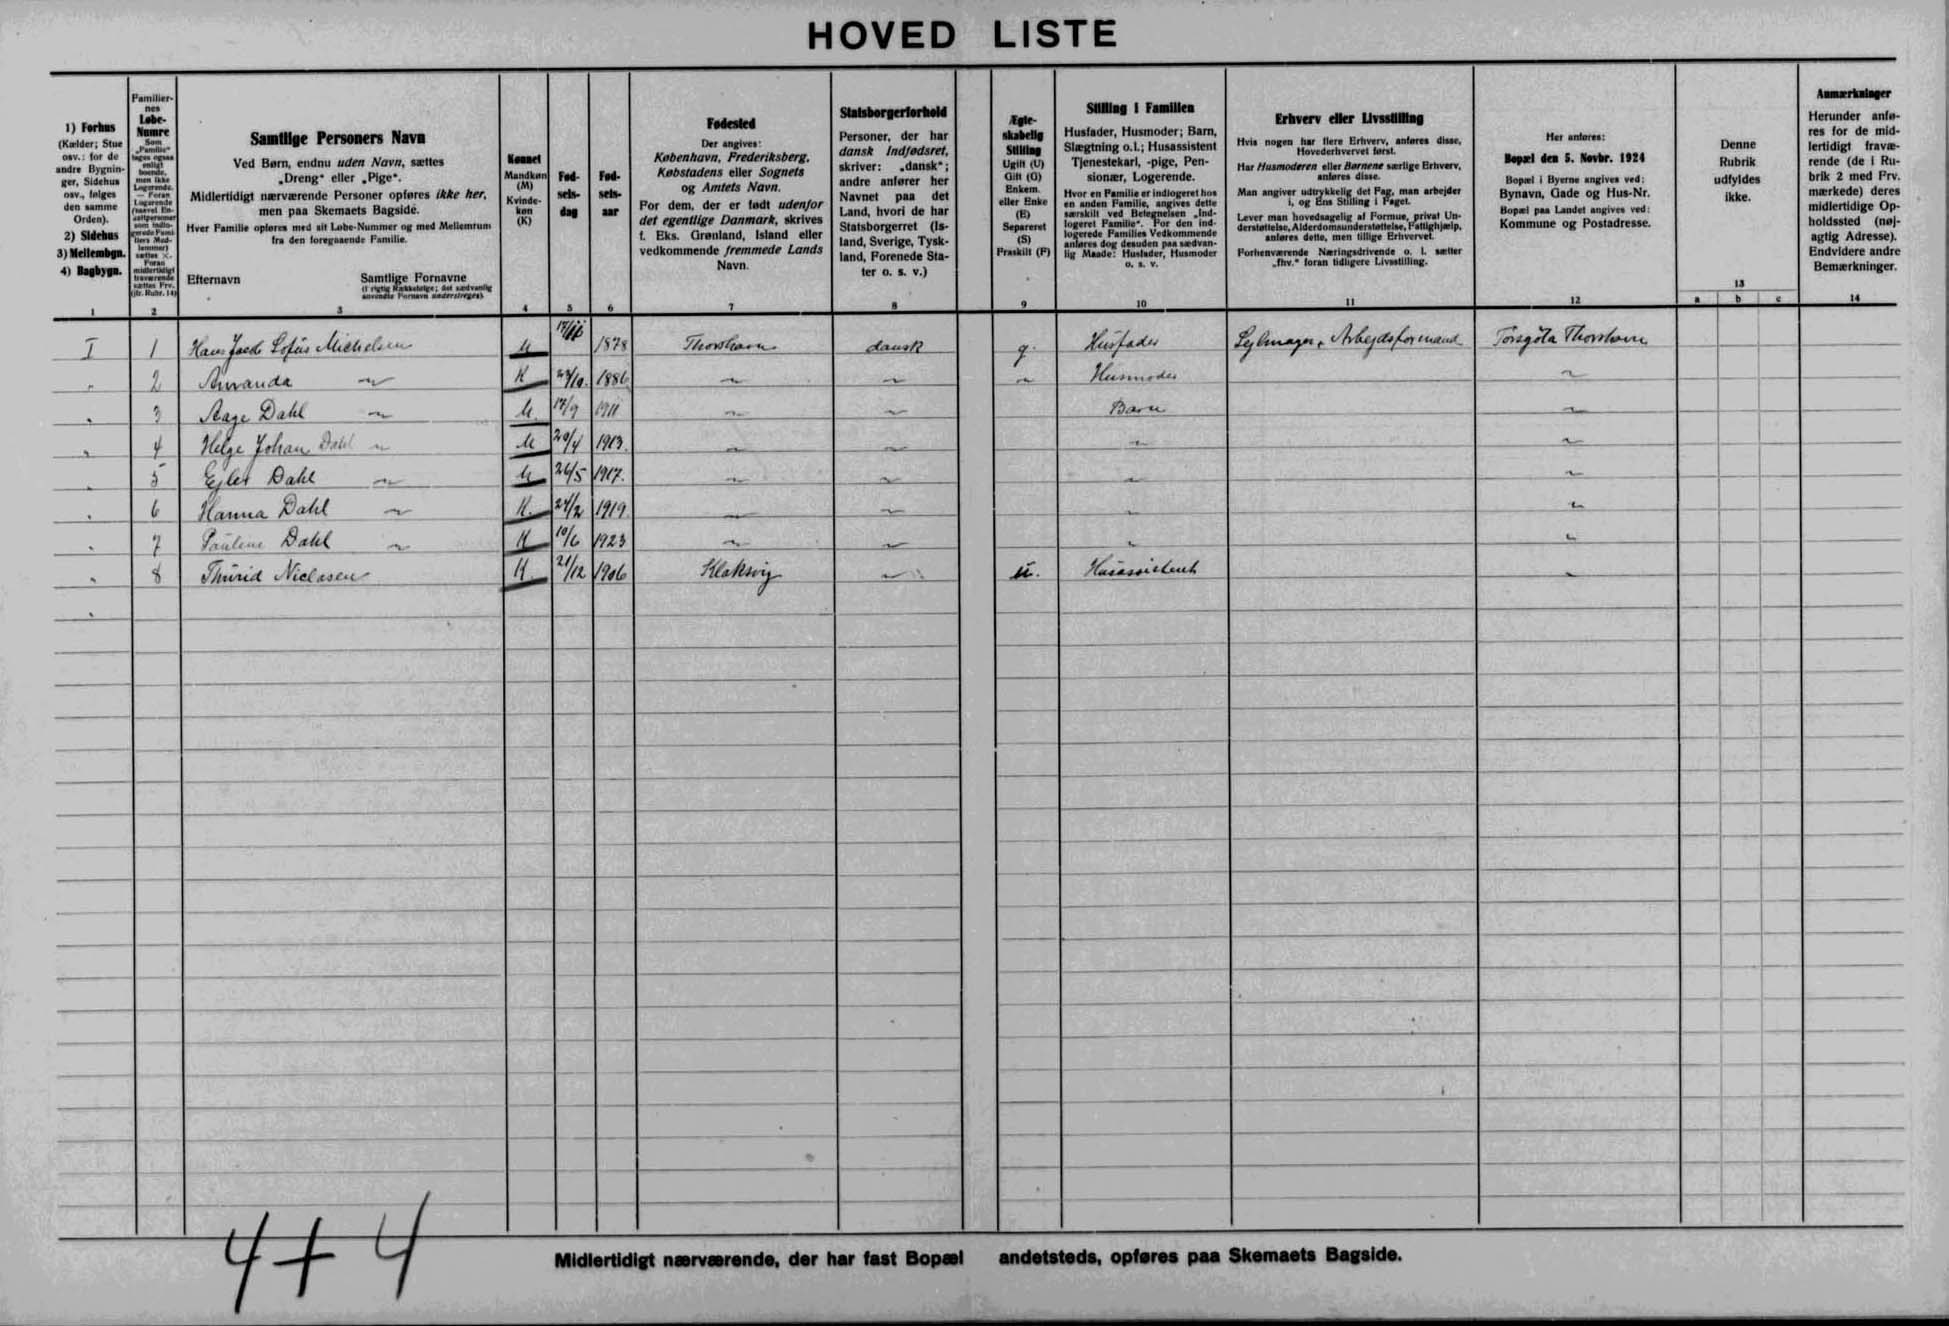 HOVED LISTE
1) Forhus
(Kælder; Stue
osv.: for de
andre Bygnin-
ger, Sidehus
osv., følges
den samme
Orden).
2) Sidehus
3) Mellembgn.
4) Bagbygn.
1
Familier-
nes
Løbe-
Numre
Som
„Familie"
tages ogsaa
enligt
boende,
men ikke
Logerende.
— Foran
Logerende
sættes ×.
Foran
midlertidigt
fraværende
sættes Frv.
(jfr. Rubr. 14)
2
Samtlige Personers Navn
Ved Børn, endnu uden Navn, sættes
„Dreng" eller „Pige".
Midlertidigt nærværende Personer opføres ikke her,
men paa Skemaets Bagside.
Hver Familie opføres med sit Løbe-Nummer og med Mellemrum
fra den foregaaende Familie.
Efternavn Samtlige Fornavne
(i rigtig Rækkefølge; det sædvanlig
anvendte Fornavn understreges).
3
Kønnet
Mandkøn
(M)
Kvinde-
køn
(K)
4
Fød-
sels-
dag
5
Fød-
sels-
aar
6
Fødested
Der angives:
København, Frederiksberg,
Købstadens eller Sognets
og Amtets Navn.
For dem, der er født udenfor
det egentlige Danmark, skrives
f. Eks. Grønland, Island eller
vedkommende fremmede Lands
Navn.
7
Statsborgerforhold
Personer, der har
dansk Indfødsret,
skriver: „dansk";
andre anfører her
Navnet paa det
Land, hvori de har
Statsborgerret (Is-
land, Sverige, Tysk-
land, Forenede Sta-
ter o. s. v.)
8
Ægte-
skabelig
Stilling
Ugift (U)
Gift (G)
Enkem.
eller Enke
(E)
Separeret
(S)
Fraskilt (F)
9
Stilling i Familien
Husfader, Husmoder; Barn,
Slægtning o.l.; Husassistent
Tjenestekarl, -pige, Pen-
sionær, Logerende.
Hvor en Familie er indlogeret hos
en anden Familie, angives dette
særskilt ved Betegnelsen „Ind-
logeret Familie". For den ind-
logerede Families Vedkommende
anføres dog desuden paa sædvan-
lig Maade: Husfader, Husmoder
o. s. v.
10
Erhverv eller Livsstilling
Hvis nogen har flere Erhverv, anføres disse,
Hovederhvervet først.
Har Husmoderen eller Børnene særlige Erhverv,
anføres disse.
Man angiver udtrykkelig det Fag, man arbejder
i, og Ens Stilling i Faget.
Lever man hovedsagelig af Formue, privat Un-
derstøttelse, Alderdomsunderstøttelse, Fattighjælp,
anføres dette, men tillige Erhvervet.
Forhenværende Næringsdrivende o. l. sætter
„fhv." foran tidligere Livsstilling.
11
Her anføres:
Bopæl den 5. Novbr. 1924
Bopæl i Byerne angives ved:
Bynavn, Gade og Hus-Nr.
Bopæl paa Landet angives ved:
Kommune og Postadresse.
12
Denne
Rubrik
udfyldes
ikke.
13
a b c
Anmærkninger
Herunder anfø-
res for de mid-
lertidigt fravæ-
rende (de i Ru-
brik 2 med Frv.
mærkede) deres
midlertidige Op-
holdssted (nøj-
agtig Adresse).
Endvidere andre
Bemærkninger.
14
I 1 Hans Jacob Sofus Michelsen M 1878 Thorshavn dansk g. Husfader Sejlmager, Arbejdsformand Torsgöta Thorshavn
" 2 Amanda ~ K 1886 ~ ~ ~ Husmoder ~
" 3 Aage Dahl ~ M 17/9 1911 ~ ~ Barn ~
" 4 Helge Johan Dahl ~ M 20/4 1913. ~ ~ ~ ~
" 5 Ejler Dahl ~ M 26/5 1917. ~ ~ ~ ~
" 6 Hanna Dahl ~ K. 24/2 1919. ~ ~ ~ ~
" 7 Pauline Dahl ~ K 10/6 1923 ~ ~ ~ ~
" 8 Thurid Niclasen K 21/12 1906 Klaksvig ~ u. Husassistent ~
4 + 4
Midlertidigt nærværende, der har fast Bopæl andetsteds, opføres paa Skemaets Bagside.